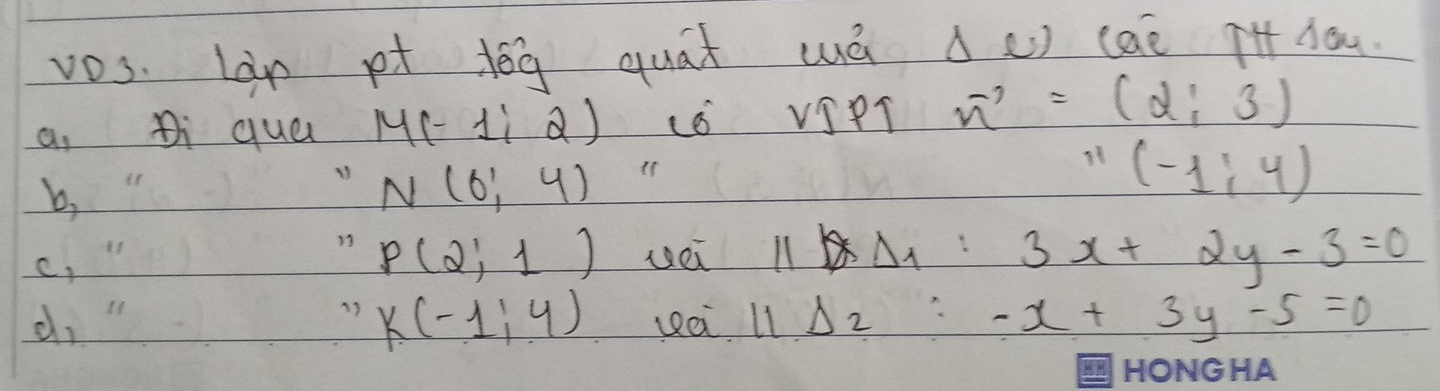 VD3. Lập pt tổg quát của Δ (..) các TH sau.
a, Đi qua M(-1; 2) có VTPT n⃗ = (2; 3)
b, " " N (0; 4) " " (-1; 4)
c, " " P(2; 1) và // Δ1 : 3x + 2y - 3 = 0
d, " " K(-1; 4) và // Δ2 : -x + 3y - 5 = 0
HONG HA